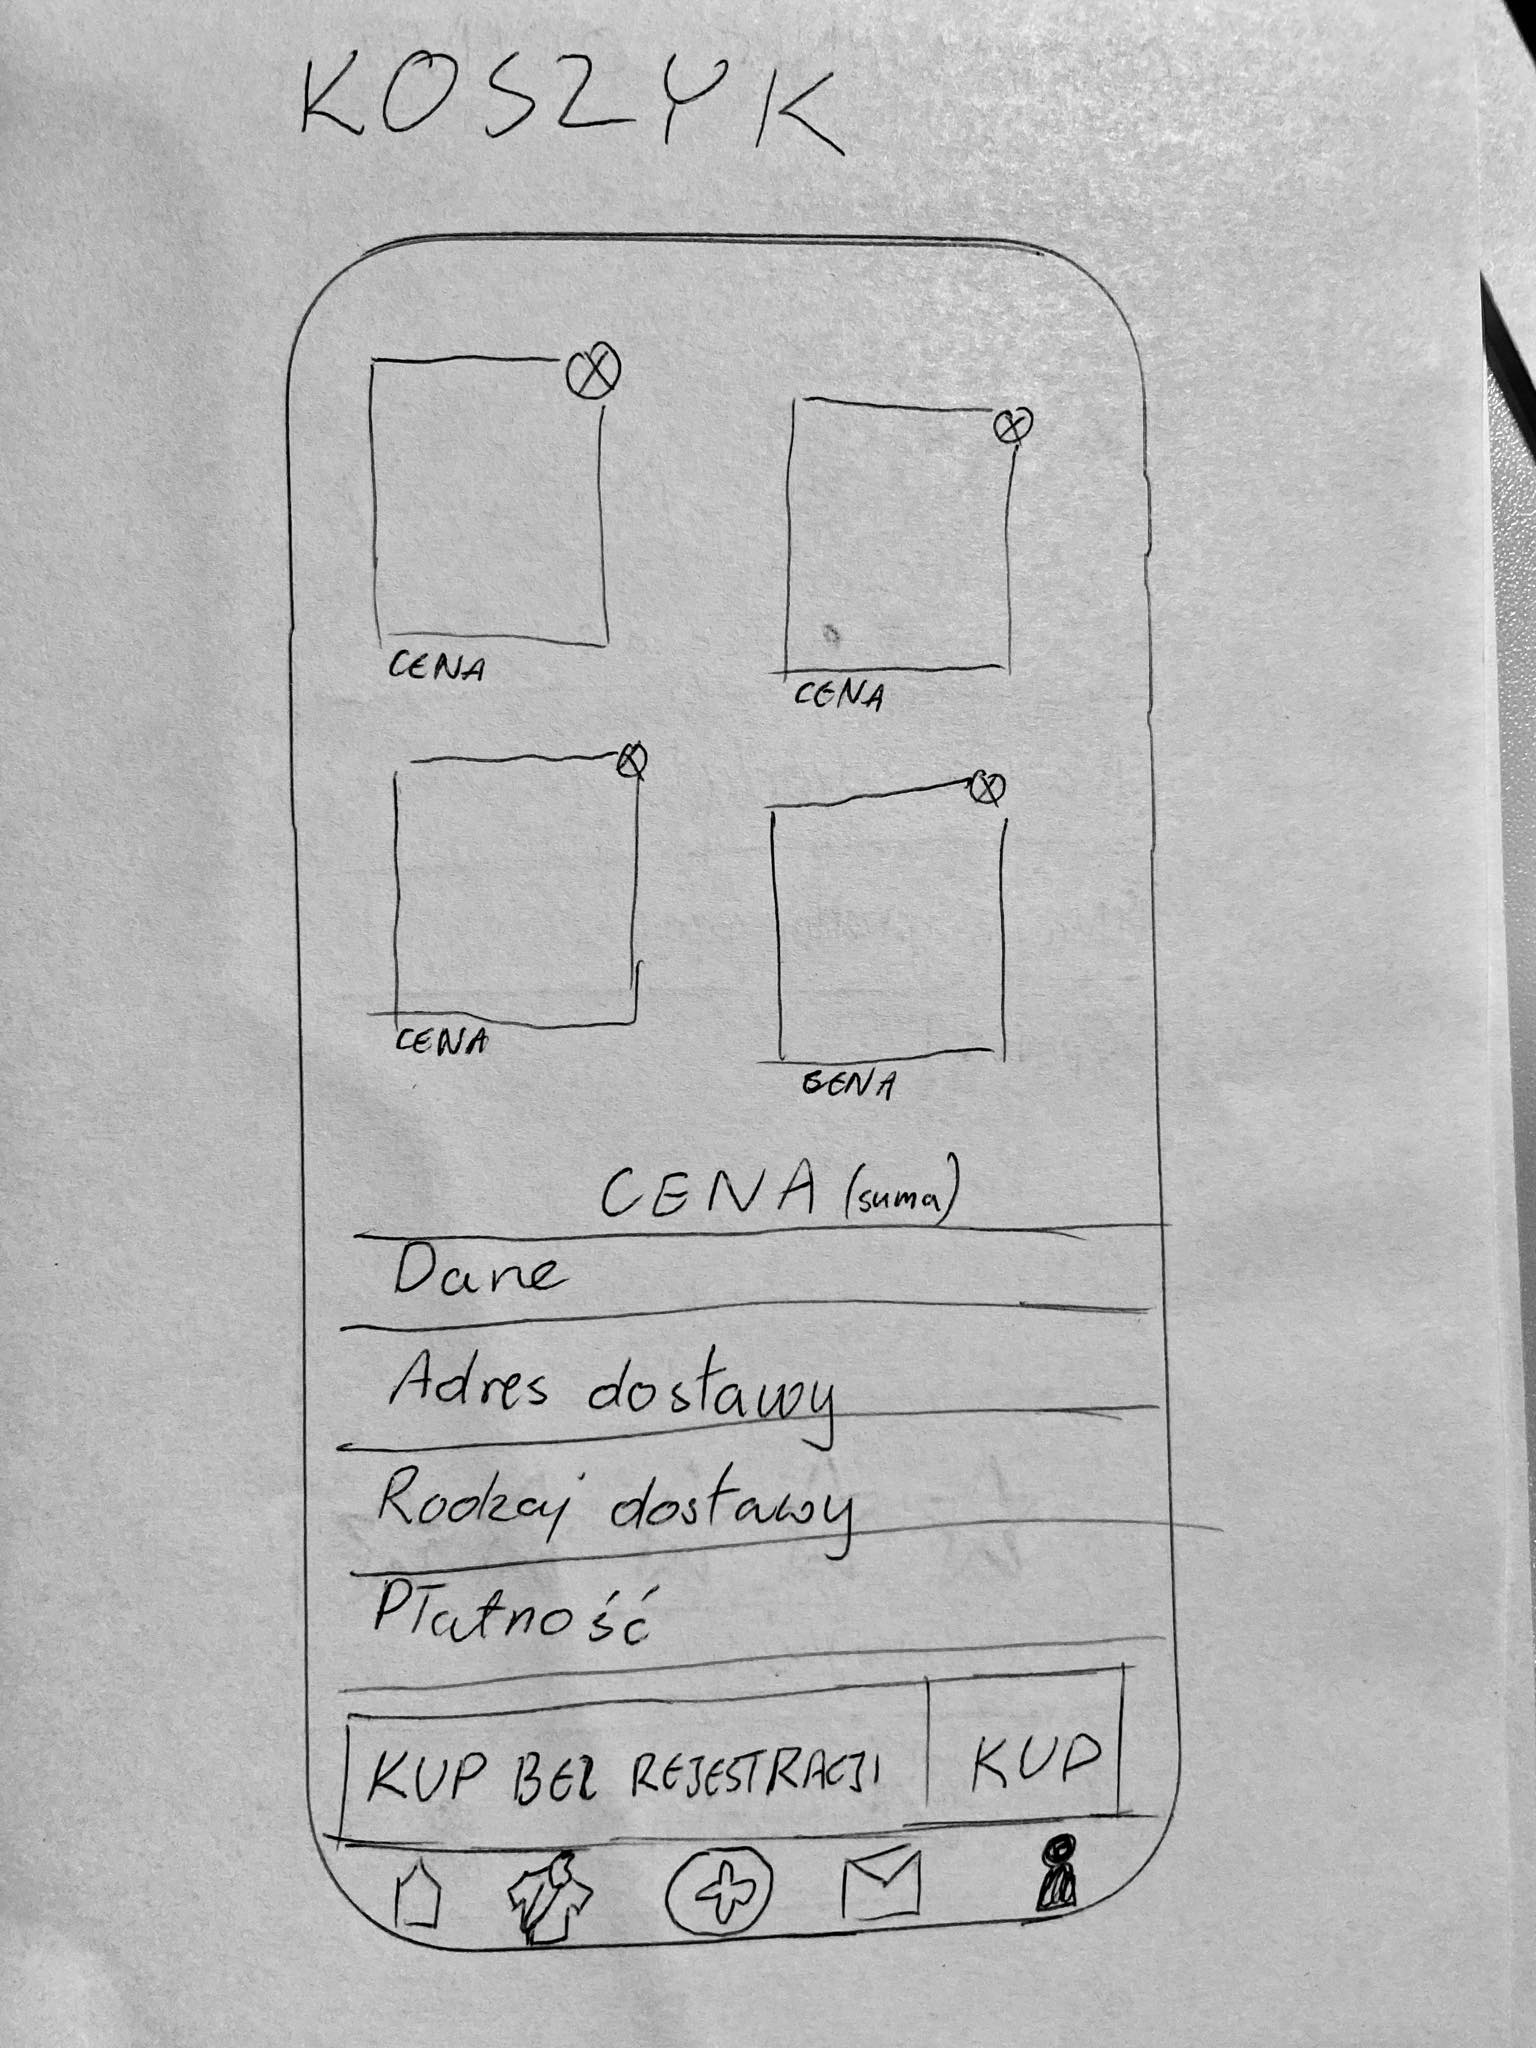 KOSZYK
CENA
CENA
CENA
CENA
CENA (suma)
Dane
Adres dostawy
Rodzaj dostawy
Płatność
KUP BEZ REJESTRACJI
KUP